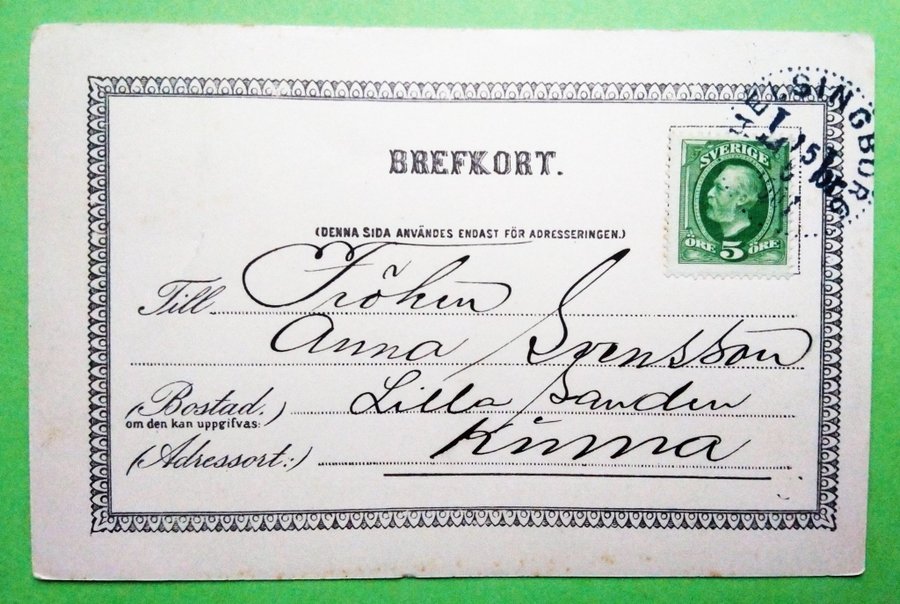 BREFKORT.
SVERIGE
ÖRE 5 ÖRE
HELSINGBORG
(DENNA SIDA ANVÄNDES ENDAST FÖR ADRESSERINGEN.)
Till Fröken
Anna Svensson
(Bostad.) Lilla Sanden
om den kan uppgifvas:
(Adressort:) Kinna